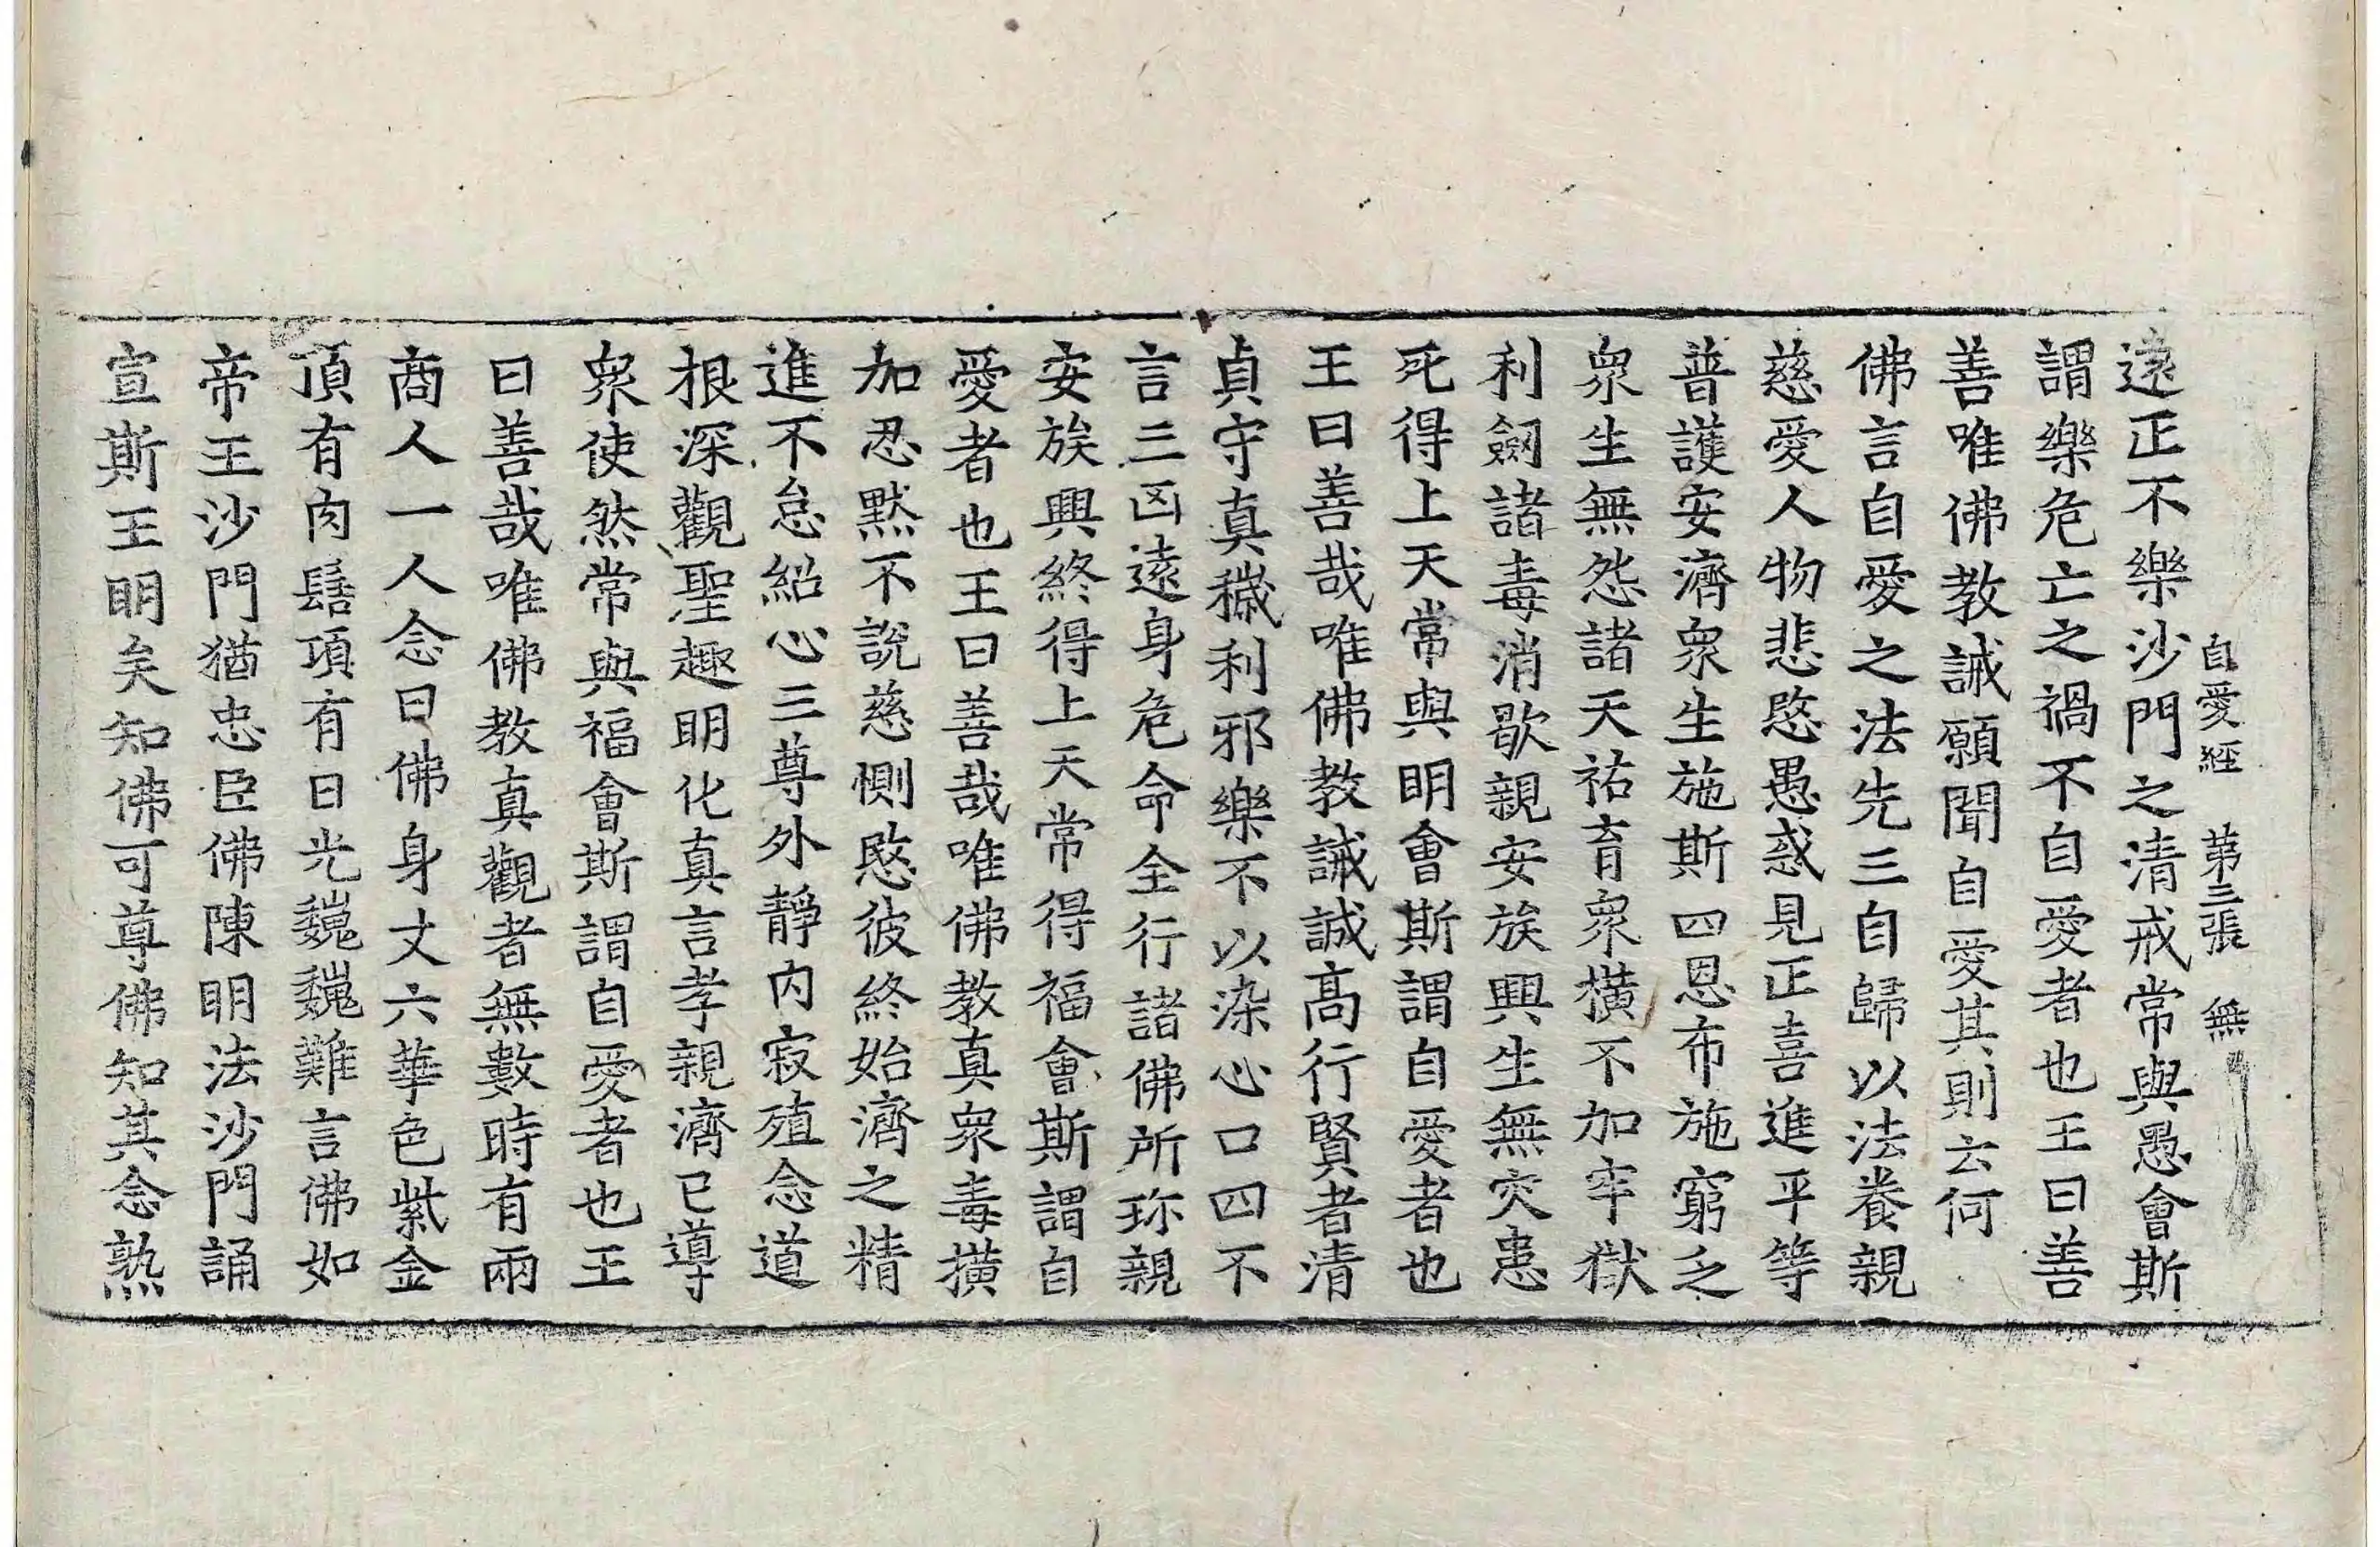 自愛經 第三張 無
遠正不樂沙門之清戒常與愚會斯
謂樂危亡之禍不自愛者也王曰善
善唯佛教誡願聞自愛其則云何
佛言自愛之法先三自歸以法養親
慈愛人物悲愍愚惑見正喜進平等
普護安濟衆生施斯四恩布施窮乏
衆生無怨諸天祐育衆橫不加牢獄
利劒諸毒消歇親安族興生無灾患
死得上天常與明會斯謂自愛者也
王曰善哉唯佛教誡誠高行賢者清
貞守真穢利邪樂不以染心口四不
言三凶遠身危命全行諸佛所珎親
安族興終得上天常得福會斯謂自
愛者也王曰善哉唯佛教真衆毒撗
加忍默不說慈惻愍彼終始濟之精
進不怠紹心三尊外靜內寂殖念道
根深觀聖趣明化真言孝親濟已導
衆使然常與福會斯謂自愛者也王
曰善哉唯佛教真觀者無數時有兩
商人一人念曰佛身丈六華色紫金
頂有肉髻項有日光巍巍難言佛如
帝王沙門猶忠臣佛陳明法沙門誦
宣斯王明矣知佛可尊佛知其念熟